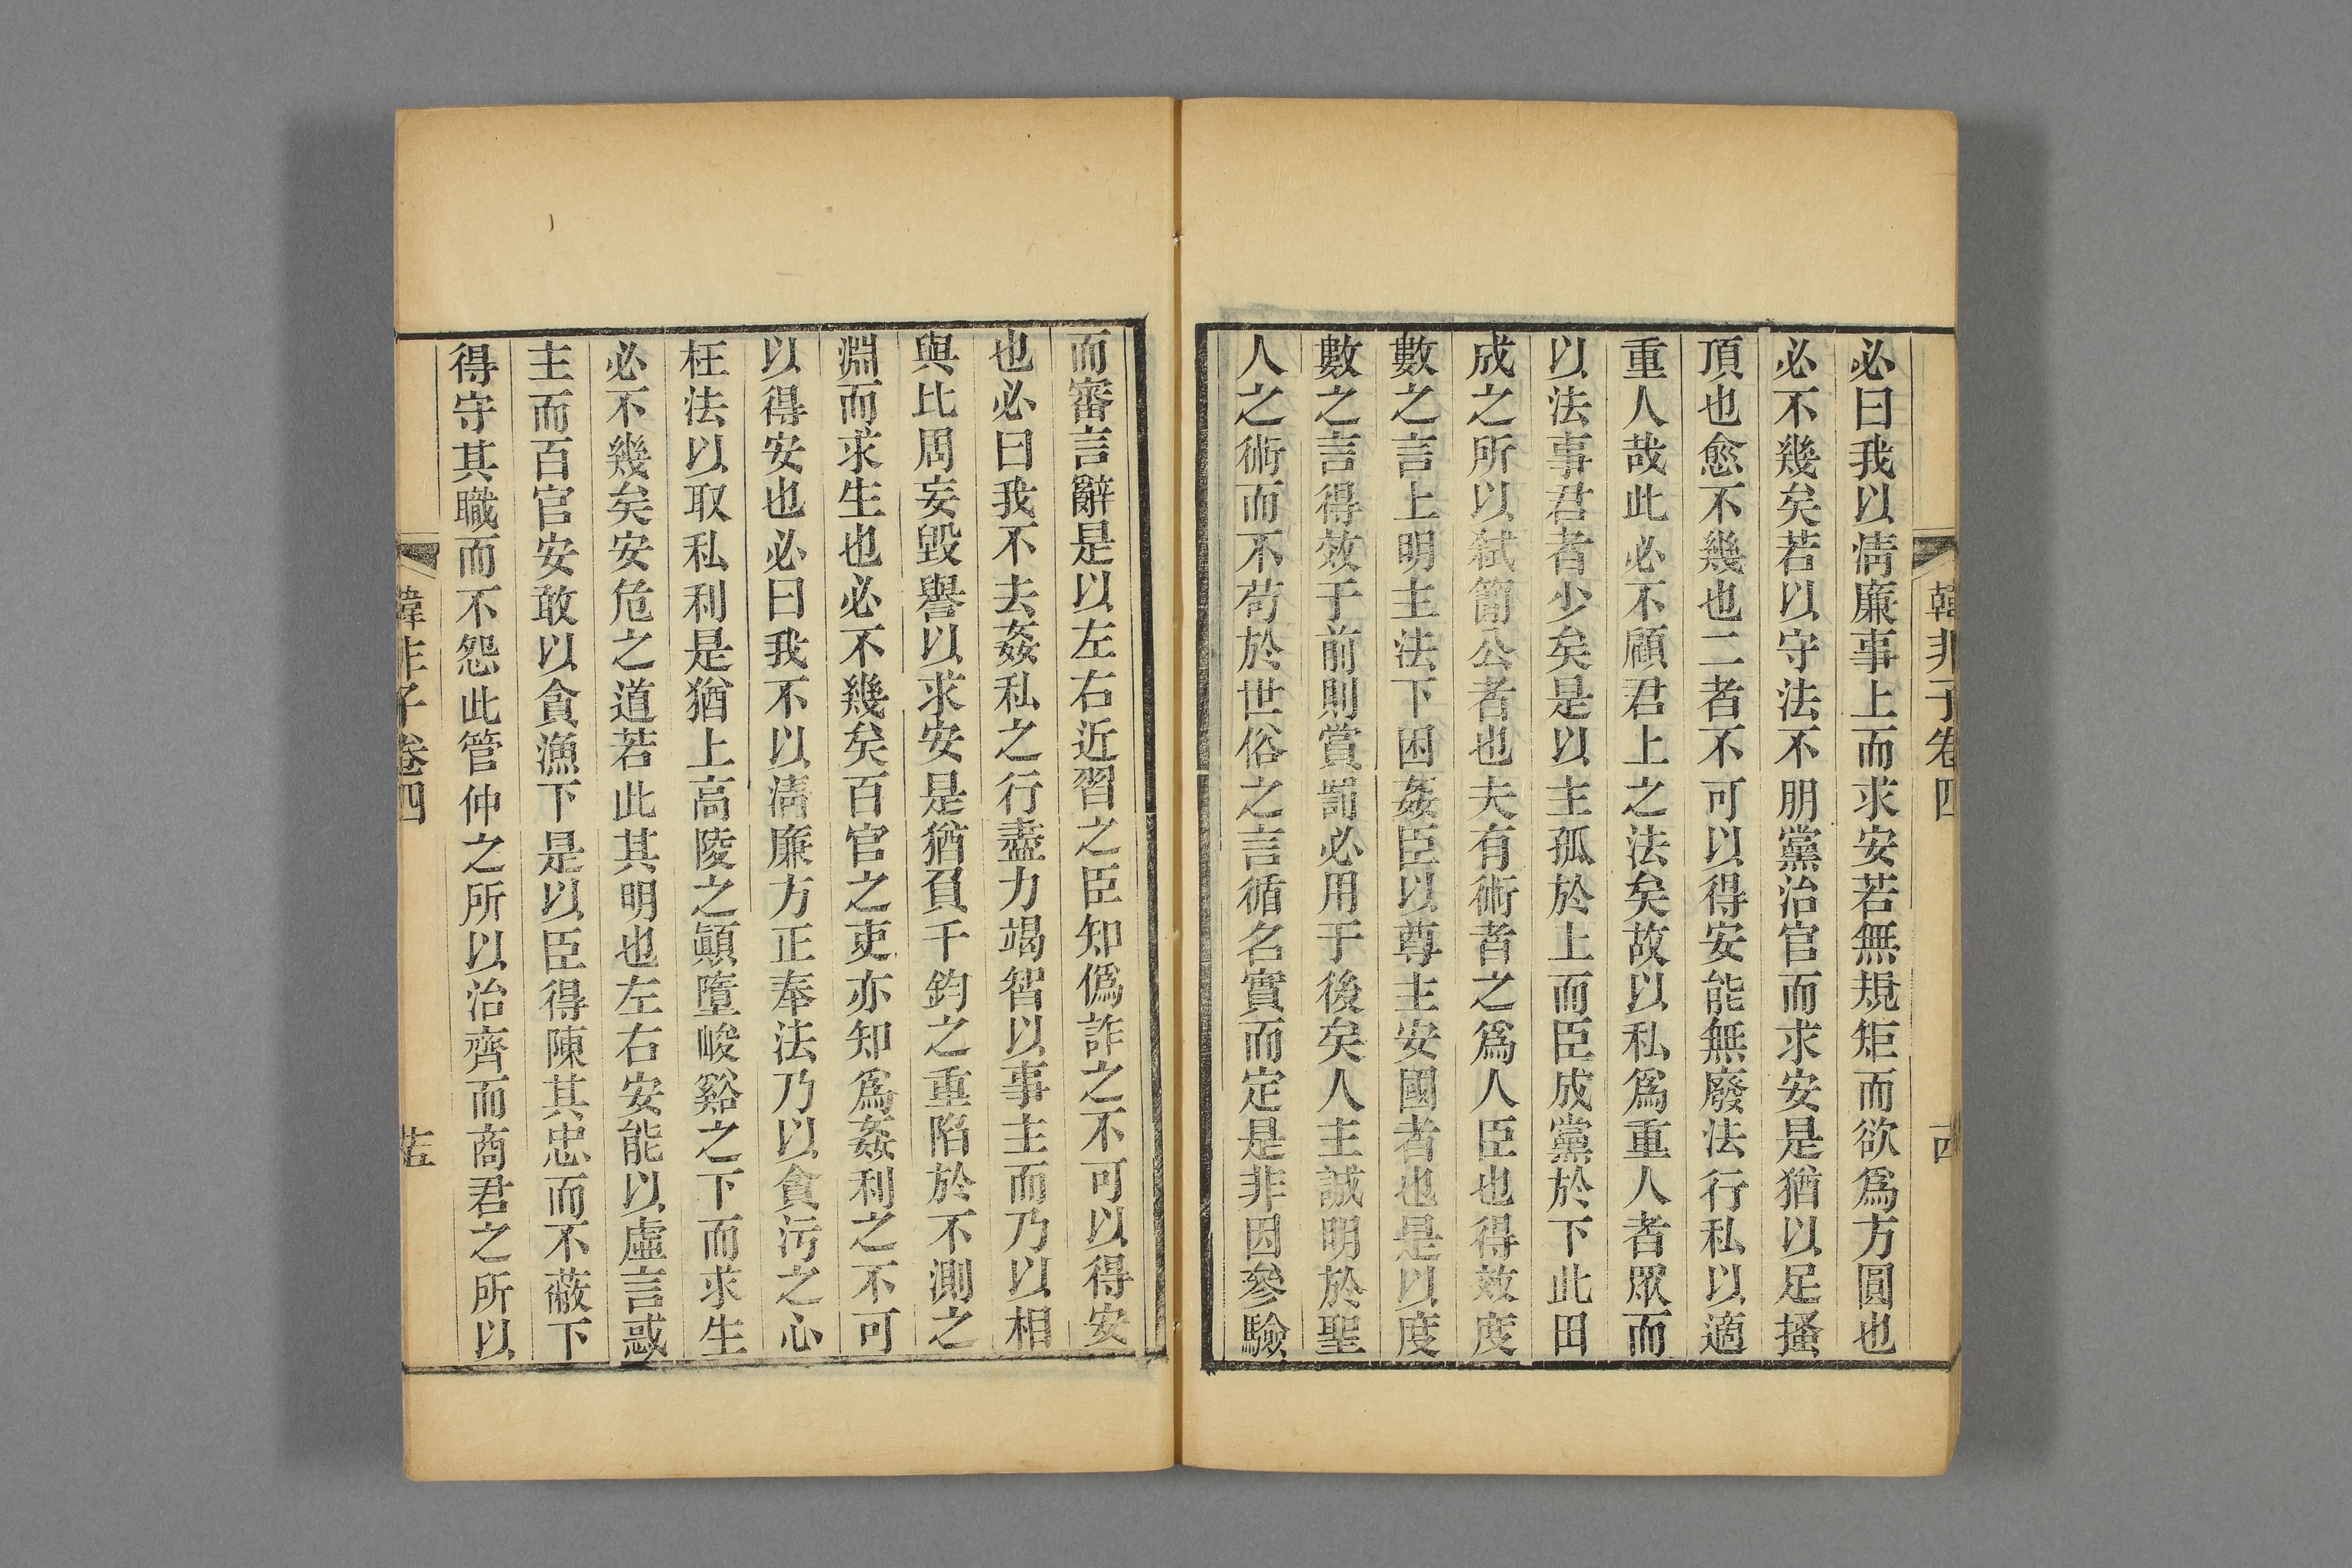 韓非子卷四
必曰我以清廉事上而求安若無規矩而欲爲方圓也
必不幾矣若以守法不朋黨治官而求安是猶以足搔
頂也愈不幾也二者不可以得安能無廢法行私以適
重人哉此必不顧君上之法矣故以私爲重人者眾而
以法事君者少矣是以主孤於上而臣成黨於下此田
成之所以弑簡公者也夫有術者之爲人臣也得效度
數之言上明主法下困姦臣以尊主安國者也是以度
數之言得效于前則賞罰必用于後矣人主誠明於聖
人之術而不苟於世俗之言循名實而定是非因參驗
而審言辭是以左右近習之臣知僞詐之不可以得安
也必曰我不去姦私之行盡力竭智以事主而乃以相
與比周妄毀譽以求安是猶負千鈞之重陷於不測之
淵而求生也必不幾矣百官之吏亦知爲姦利之不可
以得安也必曰我不以清廉方正奉法乃以貪污之心
枉法以取私利是猶上高陵之顛墮峻谿之下而求生
必不幾矣安危之道若此其明也左右安能以虛言惑
主而百官安敢以貪漁下是以臣得陳其忠而不蔽下
得守其職而不怨此管仲之所以治齊而商君之所以
韓非子卷四